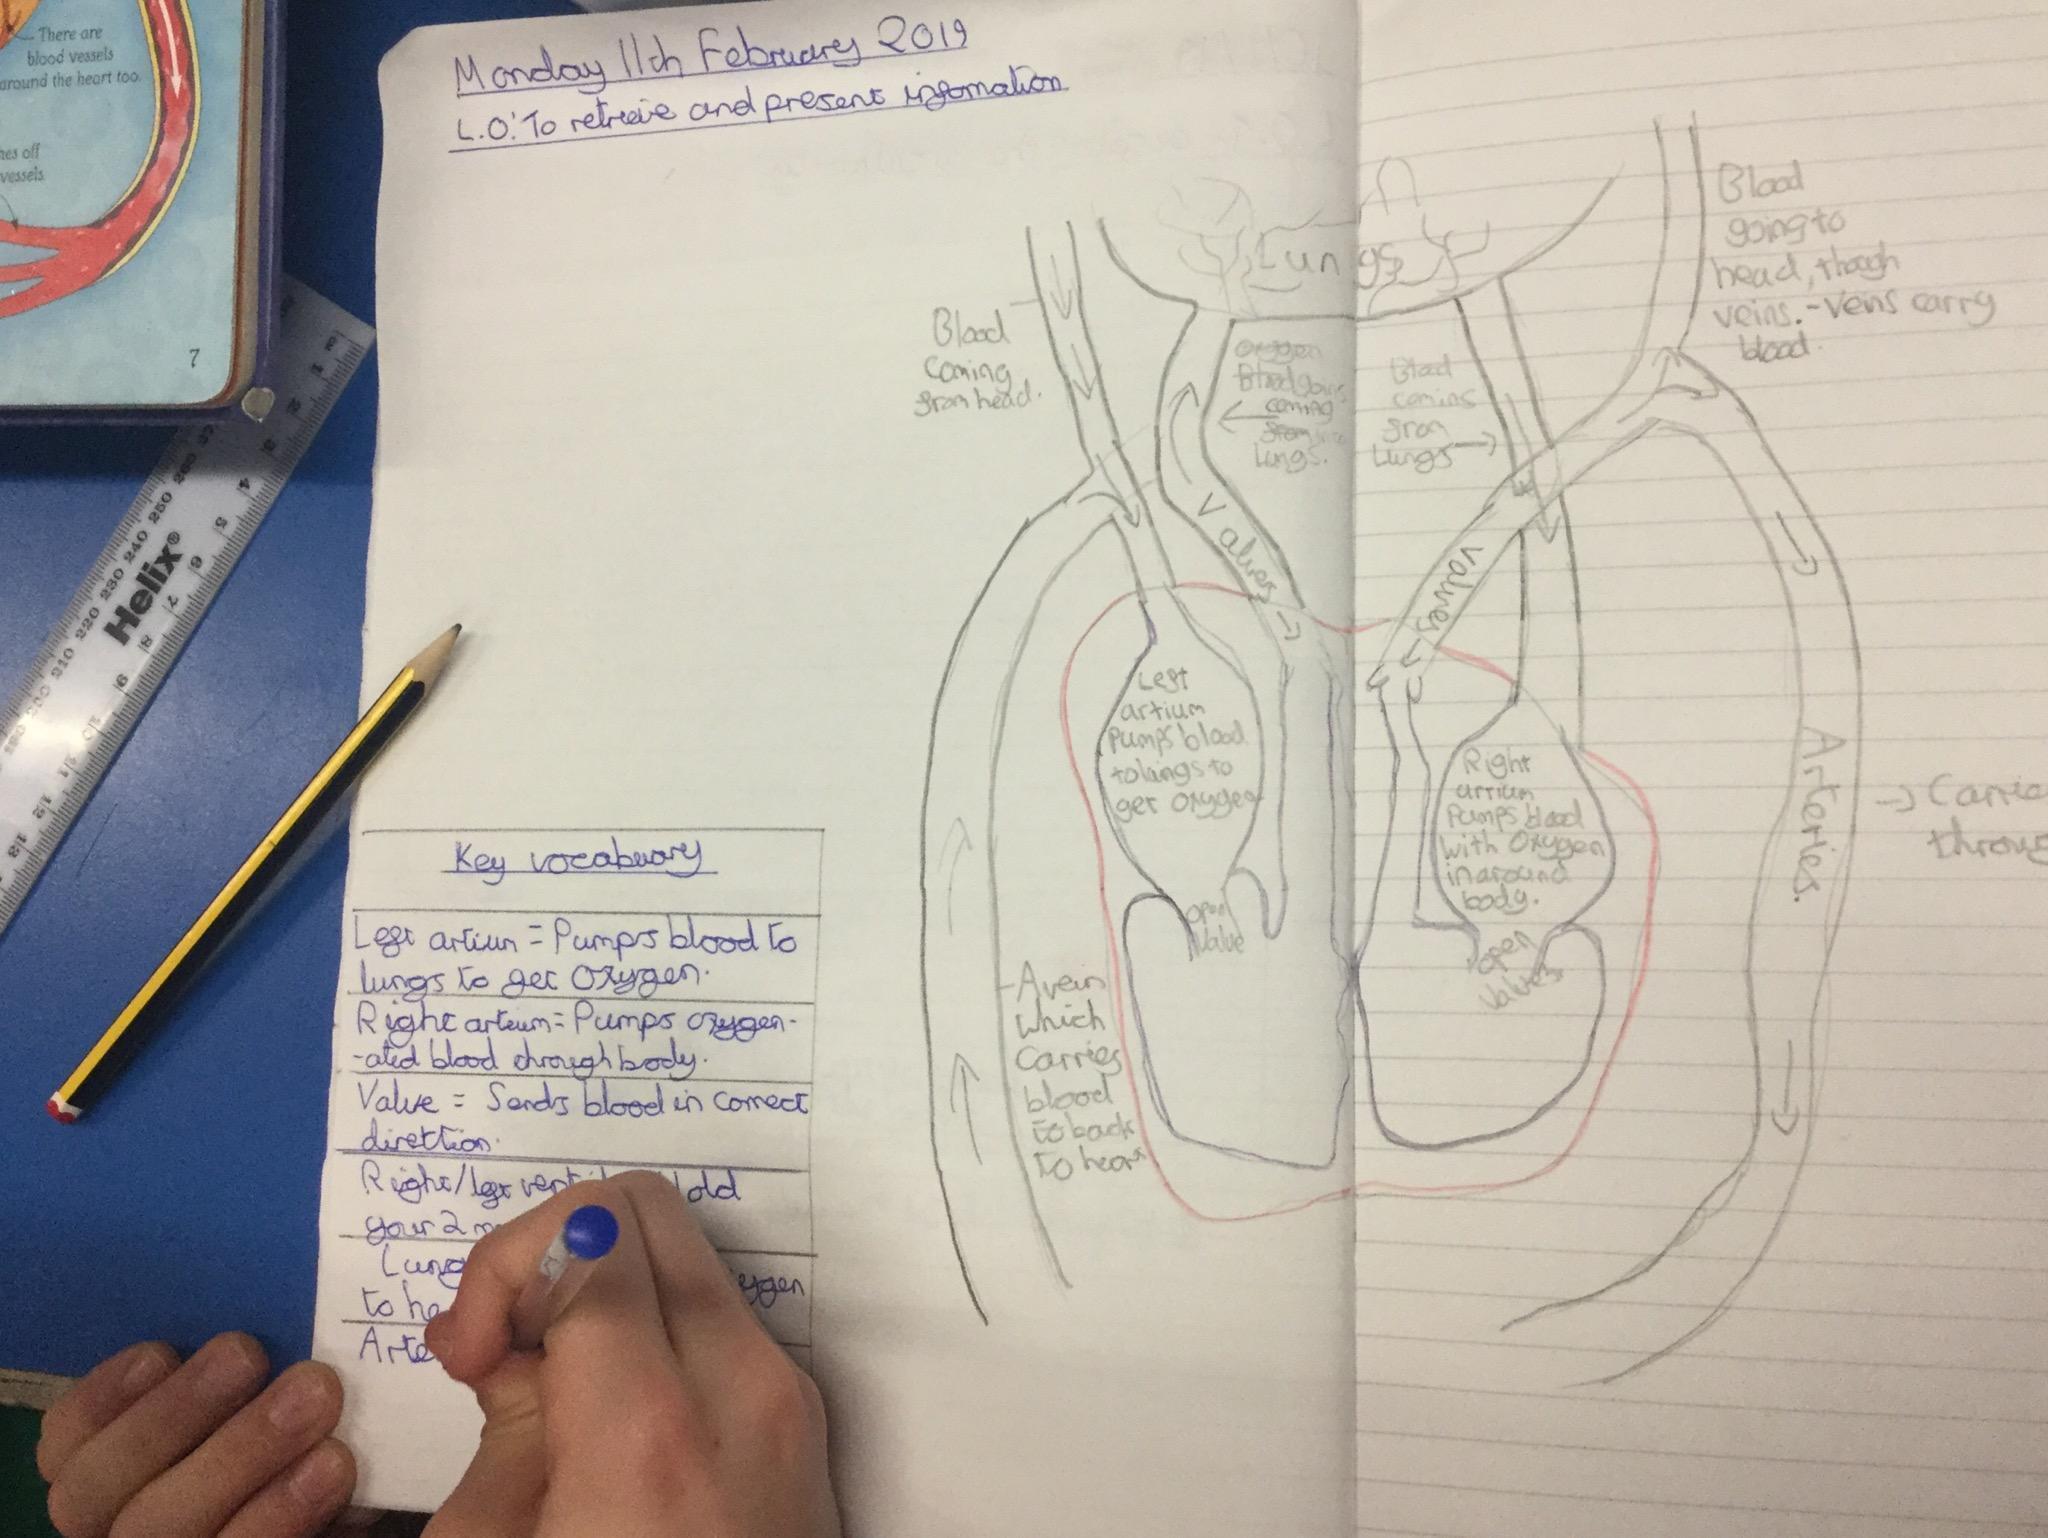 There are
blood vessels
around the heart too.
vessels
7
Helix®
Monday 11th February 2019
L.O: To retrieve and present infomation
Lungs
Blood
coming
from head.
Oxygen
Blood going
coming
from
Lungs.
Blood
coming
from
Lungs
Blood
going to
head, though
veins. - veins carry
blood.
Valves
Valves
Left
artium
Pumps blood
to lungs to
get oxygen
Right
artium
Pumps blood
with oxygen
in around
body.
Open
Valve
Open
Valves
A vein
which
carries
blood
to back
to heart
Arteries.
Key vocabuary
Left artium = Pumps blood to
lungs to get oxygen.
Right artium = Pumps oxygen-
-ated blood through body.
Valve = Sends blood in correct
direction.
Right/left
your 2
Lung
to